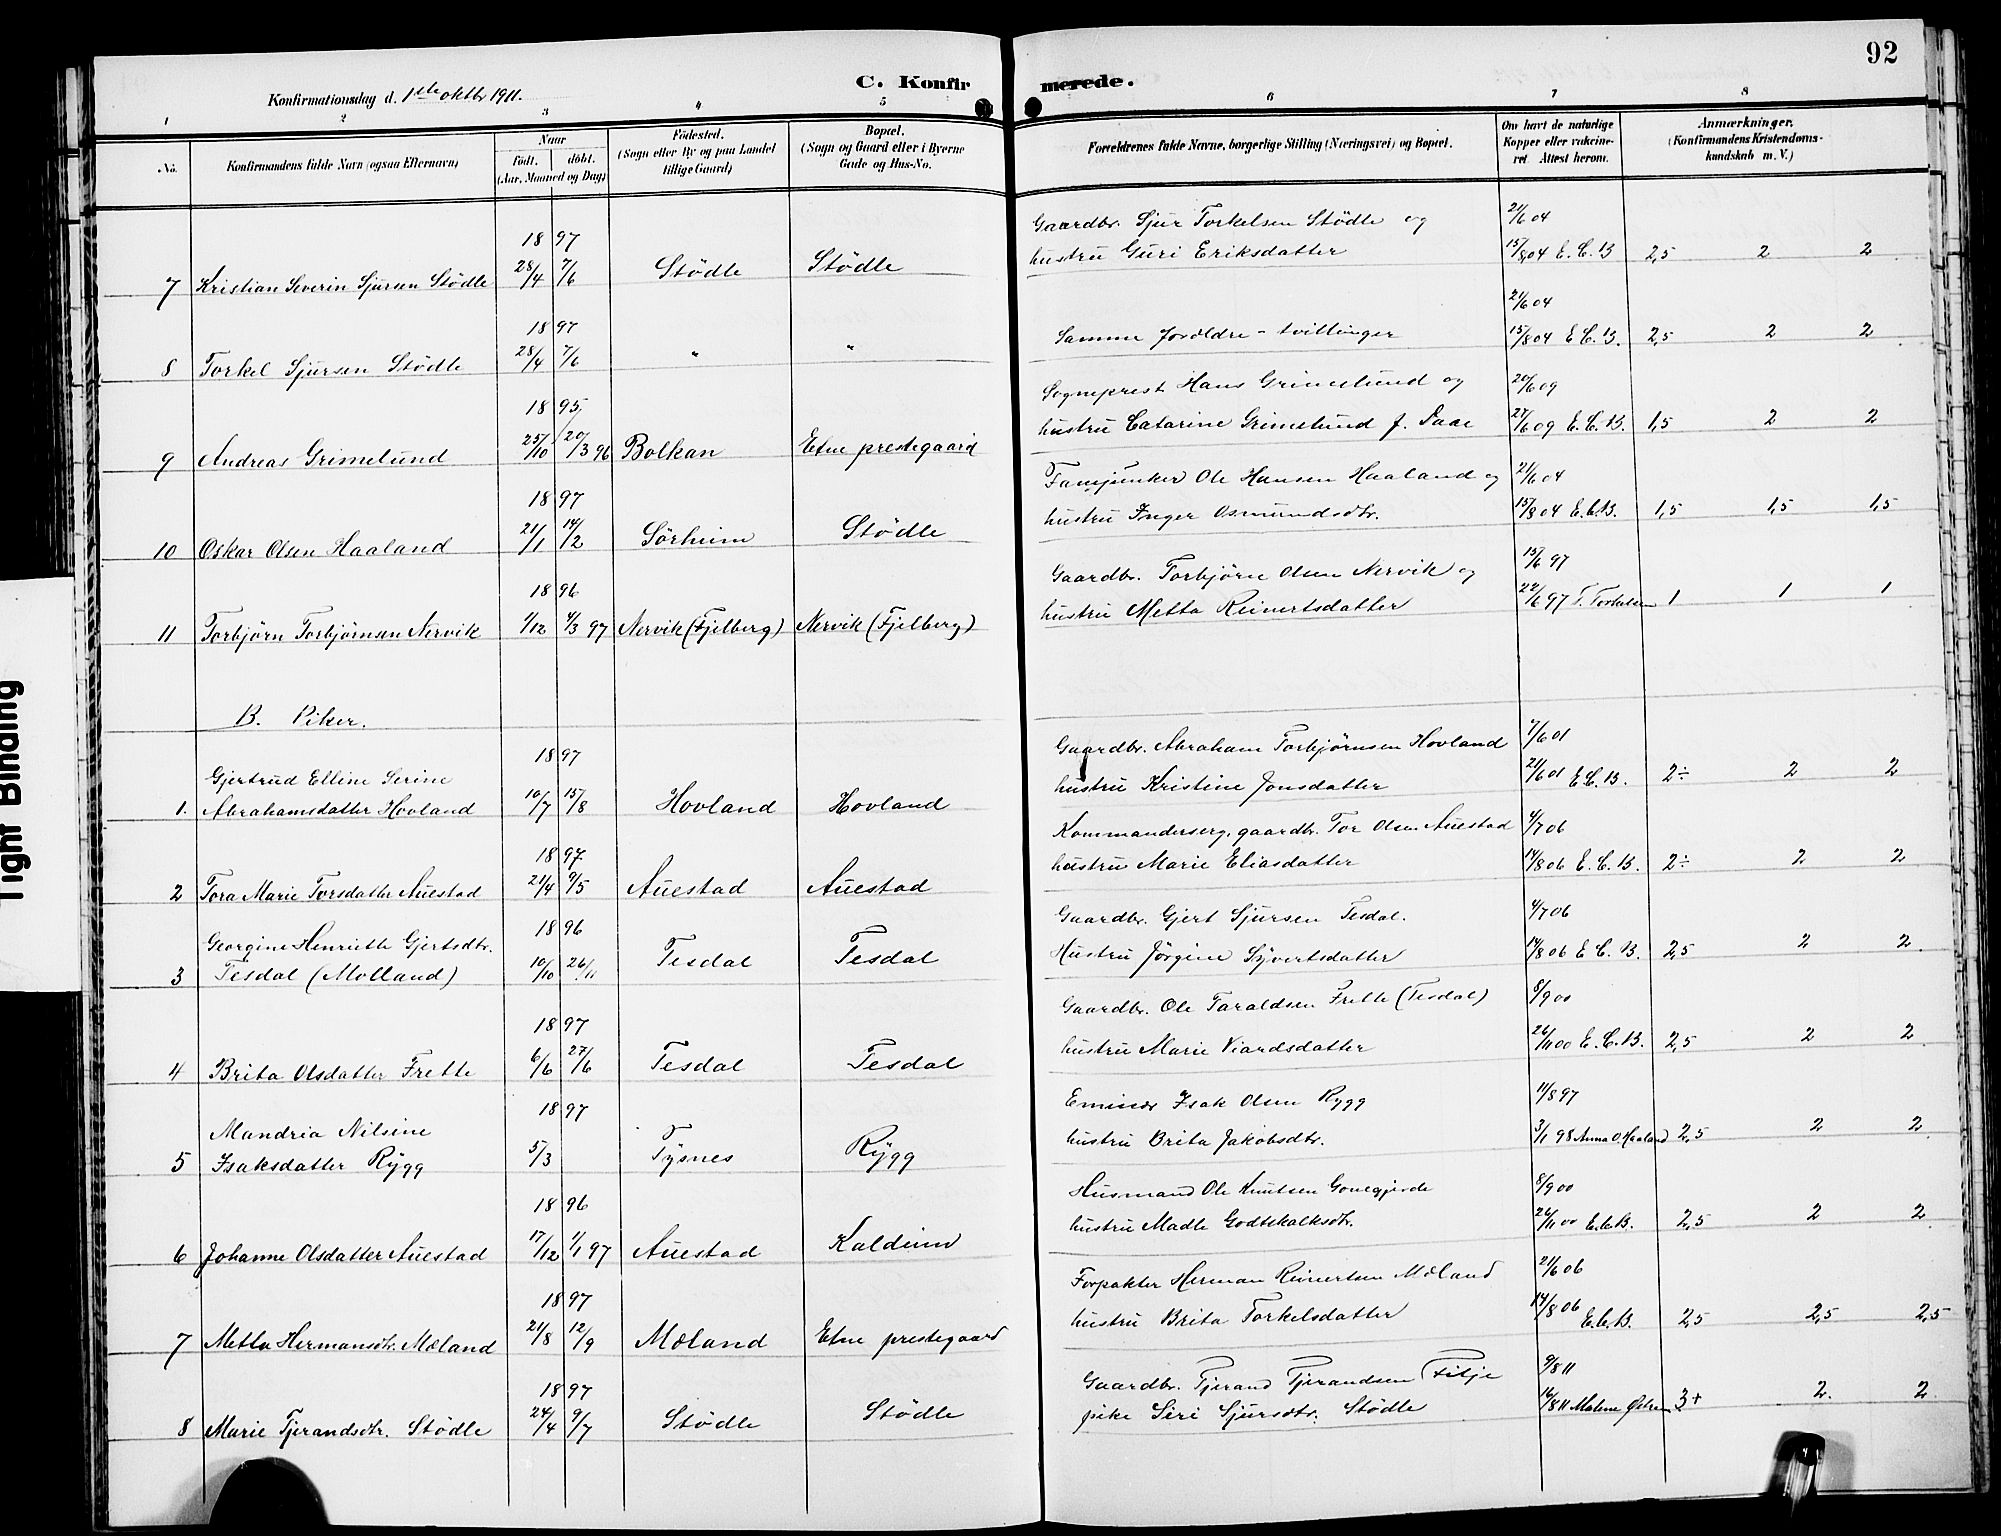 92
C. Konfirmerede.
Konfirmationsdag d. 1ste oktbr 1911.
1 2 3 4 5 6 7 8
No. Konfirmandens fulde Navn (ogsaa Efternavn) Naar födt. döbt. (Aar, Maaned og Dag) Födested. (Sogn eller By og paa Landet tillige Gaard) Bopæl. (Sogn og Gaard eller i Byerne Gade og Hus-No. Forældrenes fulde Navne, borgerlige Stilling (Næringsvei) og Bopæl. Om havt de naturlige Kopper eller vakcineret. Attest herom. Anmærkninger. (Konfirmandens Kristendomskundskab m. V.)
1897 Gaardbr. Sjur Torkelsen Stødle og 21/6 04
7 Kristian Severin Sjursen Stødle 28/4 7/6 Stødle Stødle hustru Guri Eriksdatter 15/8 04 E. C. B 2,5 2 2
1897 21/6 04
8 Torkel Sjursen Stødle 28/4 7/6 " " Samme forældre - tvillinger 15/8 04 E. C. B. 2,5 2 2
1895 Sogneprest Hans Grimelund og 20/6 09
9 Andreas Grimelund 25/10 20/3 96 Bolkan Etne prestegaard hustru Catarine Grimelund f. Daae 27/6 09 E. C. B. 1,5 2 2
1897 Fanejunker Ole Hansen Haaland og 21/6 04
10 Oskar Olsen Haaland 21/1 14/2 Sørheim Stødle hustru Inger Osmundsdtr. 15/8 04 E. C. B. 1,5 1,5 1,5
1896 Gaardbr. Torbjörn Olsen Nervik og 15/6 97
11 Torbjörn Torbjörnsen Nervik 1/12 4/3 97 Nervik (Fjelberg) Nervik (Fjelberg) hustru Metta Reinertsdatter 22/6 97 T. Torkelsen 1 1 1
B. Piker.
Gjertrud Elline Serine 1897 Gaardbr. Abraham Torbjørnsen Hovland 7/6 01
1. Abrahamsdatter Hovland 10/7 15/8 Hovland Hovland hustru Kristine Jonsdatter 21/6 01 E. C. B. 2÷ 2 2
1897 Kommanderserg. gaardbr. Tor Olsen Auestad 4/7 06
2 Tora Marie Torsdatter Auestad 21/4 9/5 Auestad Auestad hustru Marie Eliasdatter 14/8 06 E. C. B. 2÷ 2 2
Georgine Henriette Gjertsdtr. 1896 Gaardbr. Gjert Sjursen Tesdal. 4/7 06
3 Tesdal (Molland) 10/10 26/11 Tesdal Tesdal Hustru Jørgine Syvertsdatter 14/8 06 E. C. B. 2,5 2 2
1897 Gaardbr. Ole Taraldsen Frette (Tesdal) 8/9 00
4 Brita Olsdatter Frette 6/6 27/6 Tesdal Tesdal hustru Marie Viardsdatter 26/11 00 E. C. B. 2,5 2 2
Mandria Nilsine 1897 Emissær Isak Olsen Rygg 11/8 97
5 Isaksdatter Rygg 5/3 Tysnes Rygg hustru Brita Jakobsdtr. 3/1 98 Anna O. Haaland 2,5 2 2
1896 Husmand Ole Knutsen Gonegjerde 8/9 00
6 Johanne Olsdatter Auestad 17/12 1/1 97 Auestad Kaldeim hustru Madle Godtskalksdtr. 26/11 00 E. C. B. 2,5 2 2
1897 Forpakter Herman Reinertsen Mæland 21/6 06
7 Metta Hermansdtr. Mæland 21/8 12/9 Mæland Etne prestegaard hustru Brita Torkelsdatter 14/8 06 E. C. B. 2,5 2,5 2,5
1897 Gaardbr. Tjerand Tjerandsen Fitje 9/8 11
8 Marie Tjerandsdtr. Stødle 24/4 9/7 Stødle Stødle pike Siri Sjursdtr. Stødle 16/8 11 Malene 3+ 2. 2.
Tight Binding